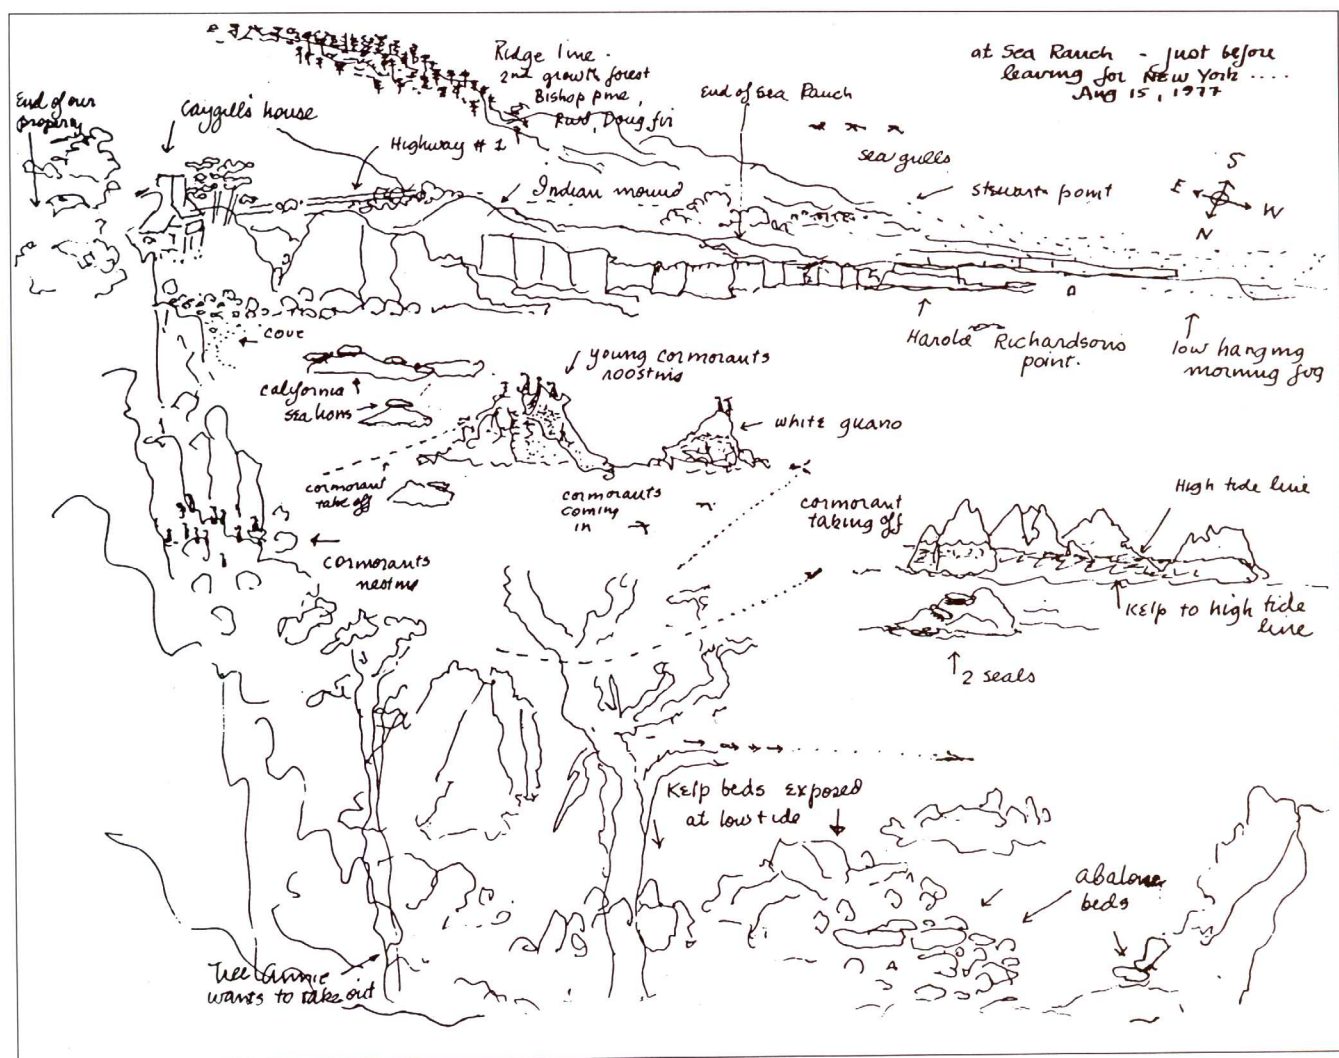 at Sea Ranch - Just before
leaving for New York ....
Aug 15, 1977
Ridge line -
2nd growth forest
Bishop pine,
Doug fir
End of Sea Ranch
End of our
property
Caygill's house
Highway # 1
Indian mound
sea gulls
Stewarts point
S
E
W
N
Harold Richardson's
point.
low hanging
morning fog
cove
young cormorants
roosting
California
sea lions
white guano
cormorant
take off
cormorants
coming
in
cormorant
taking off
High tide line
cormorants
nesting
Kelp to high tide
line
2 seals
Kelp beds exposed
at low tide
abalone
beds
Tree Annie
wants to take out